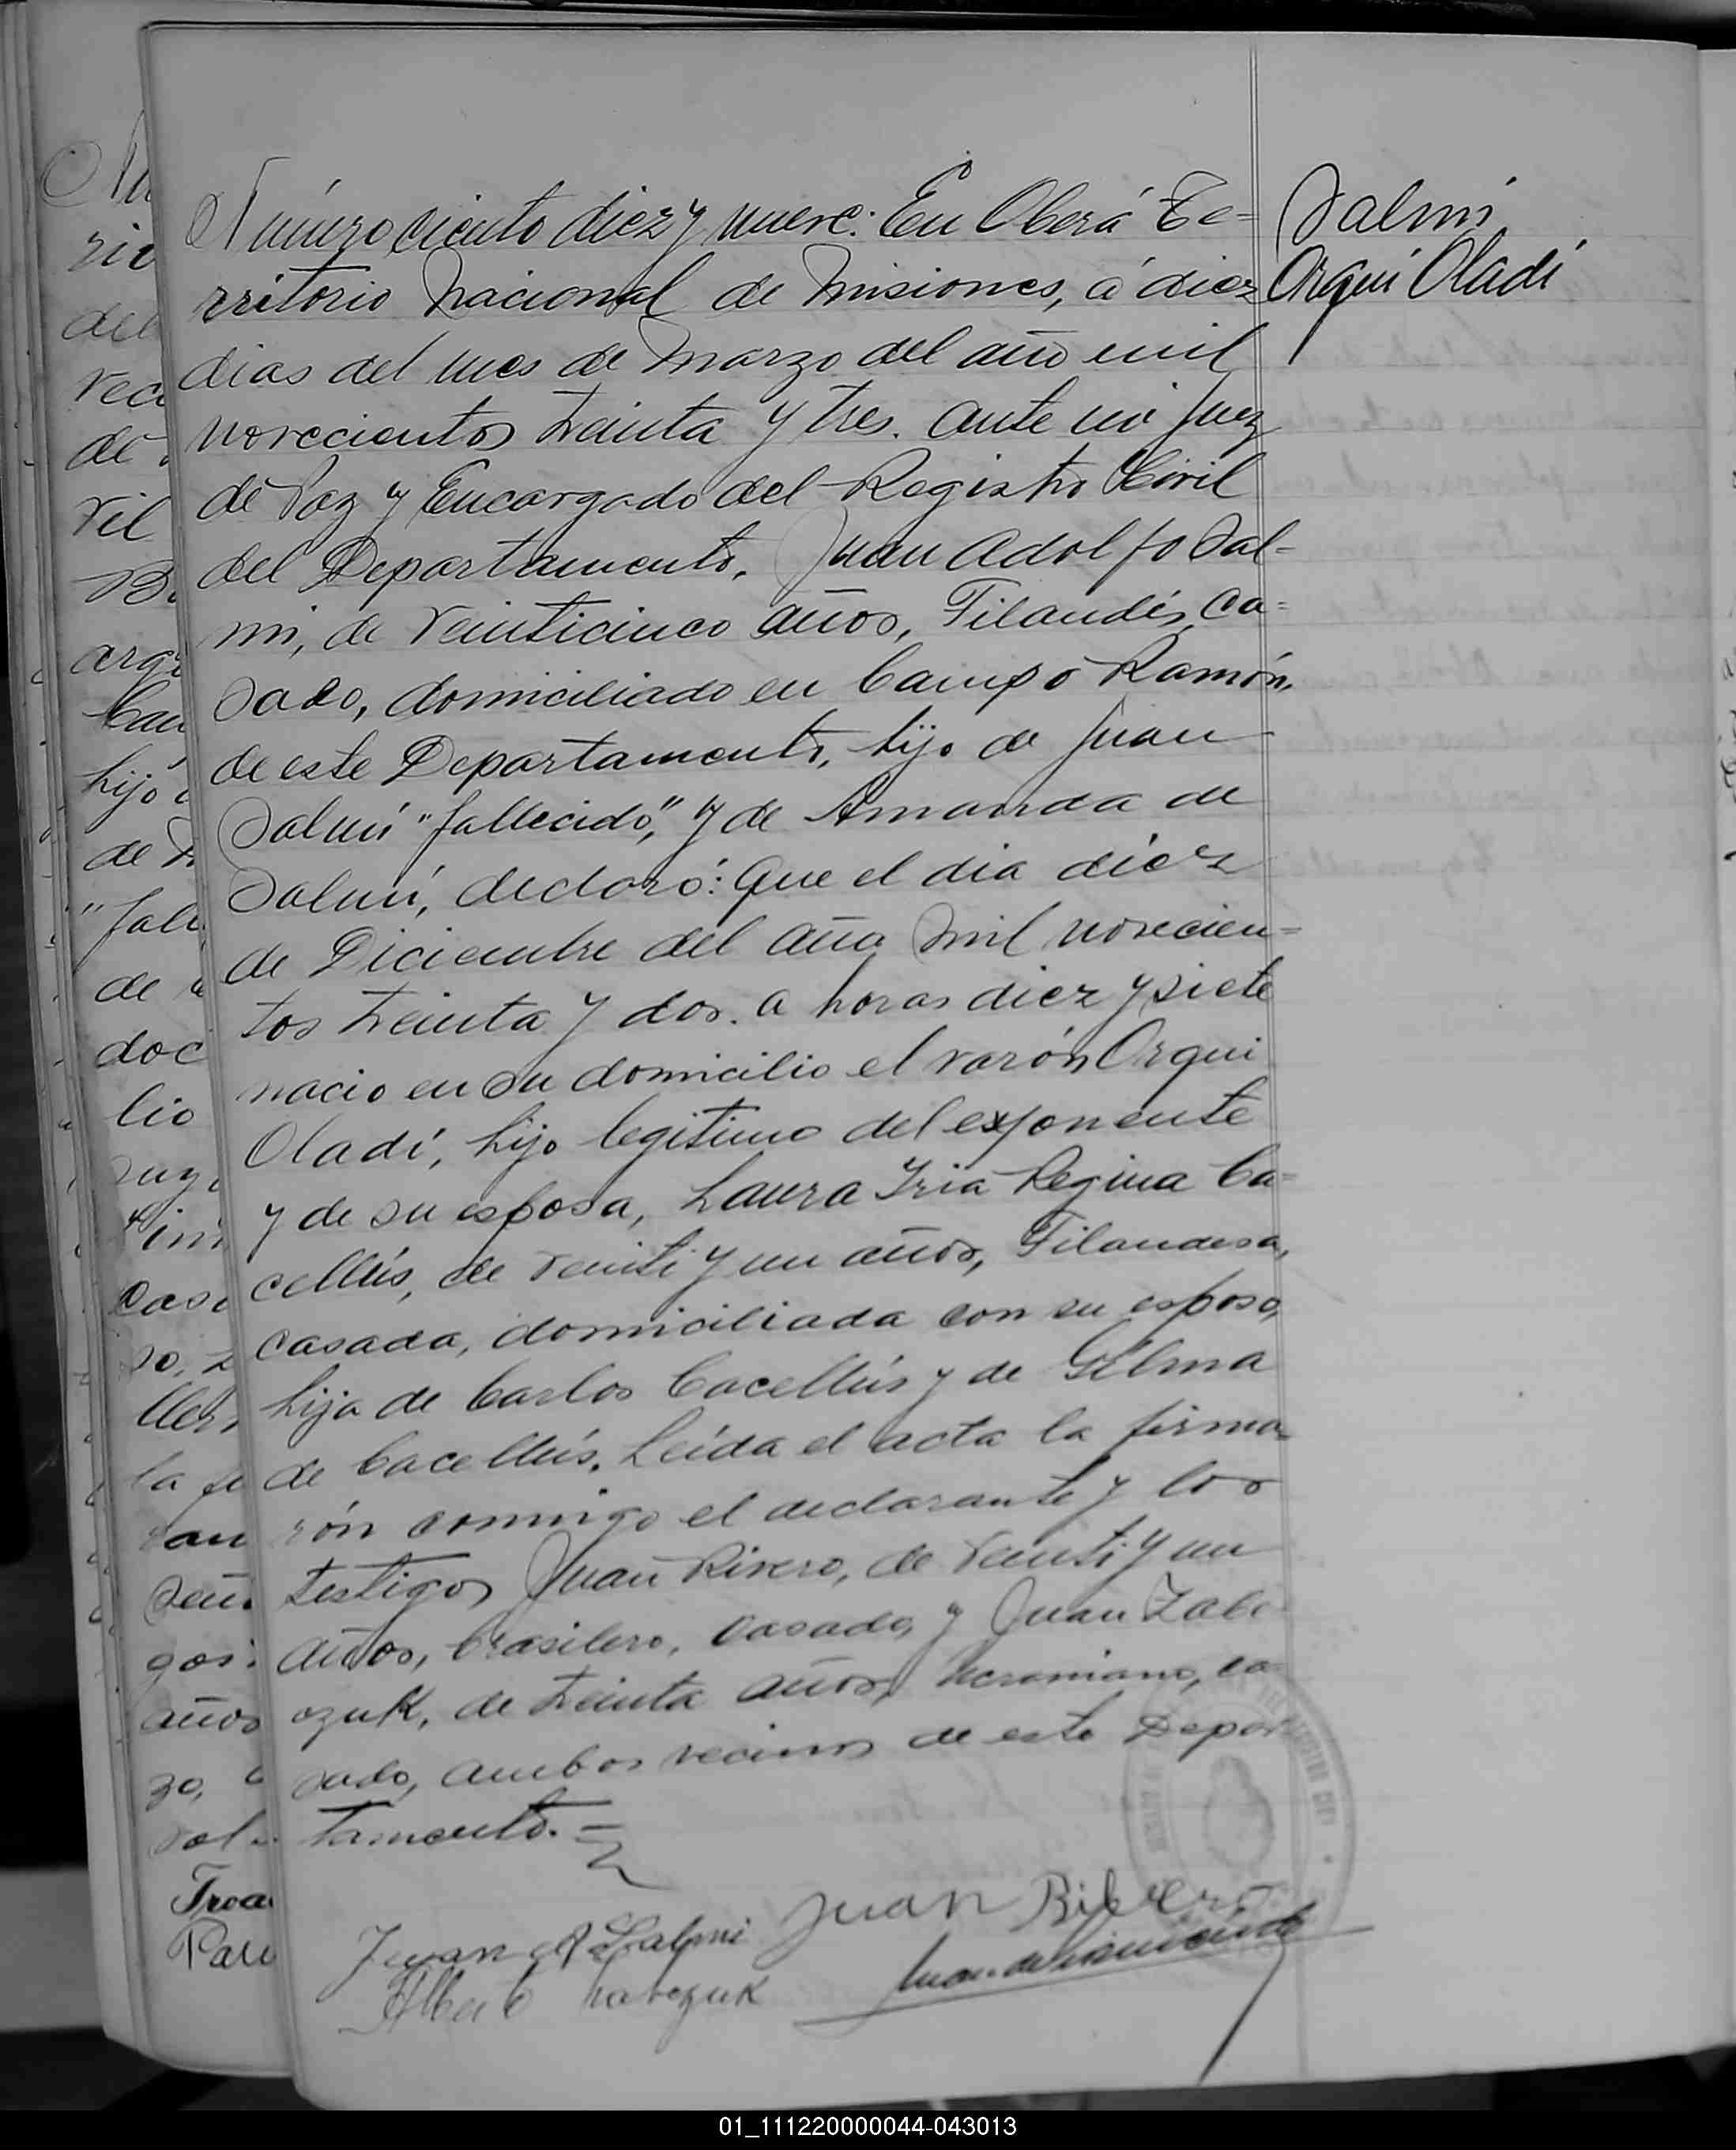 Salmi
Orqui Oladi
Número ciento diez y nueve: En Oberá Te=
rritorio Nacional de Misiones, á diez
dias del mes de Marzo del año mil
novecientos treinta y tres. ante mi Juez
de Paz y Encargado del Registro Civil
del Departamento, Juan Adolfo Sal=
mi, de veinticinco años, Filandés, ca=
sado, domiciliado en Campo Ramón,
de este Departamento, hijo de Juan
Salmi "fallecido", y de Amanda de
Salmi, declaró: Que el dia diez
de Diciembre del año mil novecien=
tos treinta y dos. a horas diez y siete
nacio en su domicilio el varón Orqui
Oladi, hijo legitimo del exponente
y de su esposa, Laura Iria Regina Ca=
cellús, de veinti y un años, Filandesa,
casada, domiciliada con su esposo,
hija de Carlos Cacellús y de Gilma
de Cacellús. Leida el acta la firma=
rón conmigo el declarante y los
testigos Juan Rivero, de veinti y un
años, brasilero, casado, y Juan Zabc
ozuk, de treinta años, ucraniano, ca
sado, ambos vecinos de este Depar
tamento.=
Juan A Salmi
Juan Ribero
01_111220000044-043013